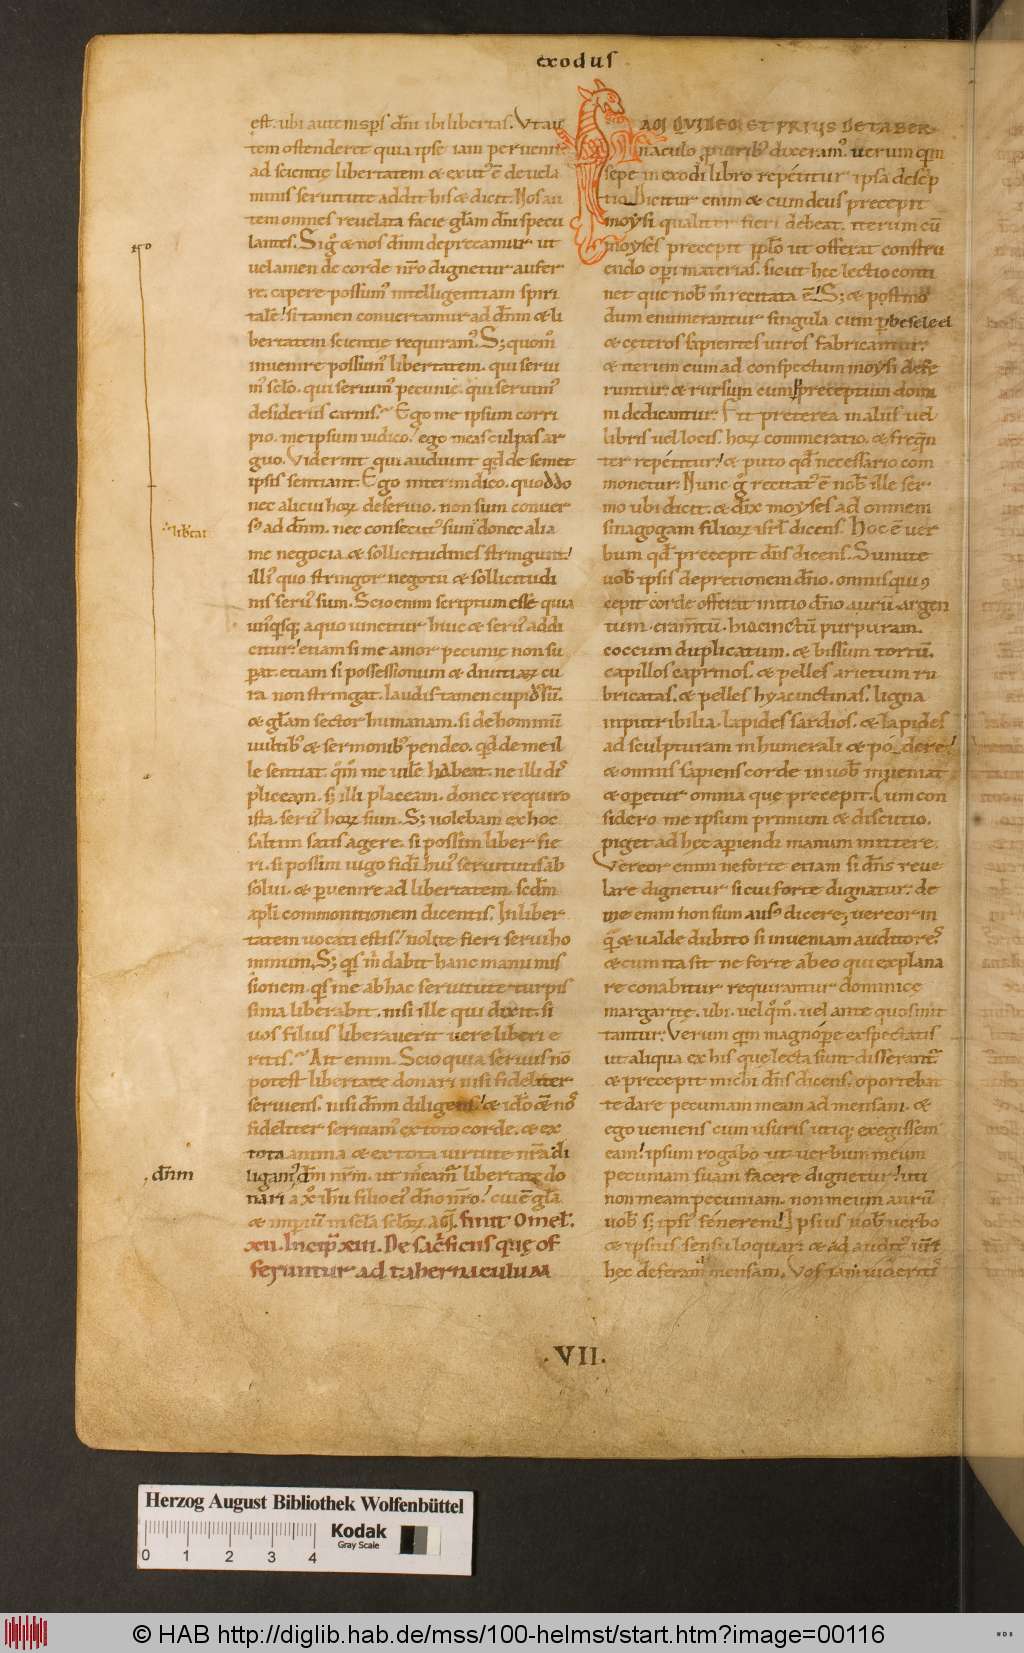 exodus
est. ubi autem sps dni ibi libertas. Ut au
tem ostenderet quia ipse iam pervenit
ad scientię libertatem & exut' ē de vela
minis servitute addit his & dicit. Nos au
tem omnes revelata facie glam dni specu
lantes. Sigͦ & nos dnm deprecamur ut
velamen de corde nro dignetur aufer
re. capere possum' intelligentiam spiri
talē! si tamen convertamur ad dnm & li
bertatem scientie requiram'. S; quom̊
invenire possum' libertatem. qui servi
m' sclo. qui servim' pecunie. qui servim'
desideriis carnis. Ego me ipsum corri
pio. me ipsum iudico. ego meas culpas ar
guo. Viderint qui audiunt qd de semet
ipsis sentiant. Ego interim dico. quoddo
nec alicui hoꝝ deservio. non sum conver
s' ad dnm. nec consecut' sum donec alia
me negocia & sollicitudines stringunt!
illi' quo stringor negotii & sollicitudi
nis serv' sum. Scio enim scriptum esse quia
un'qsq; a quo vincitur huic & serv' addi
citur! etiam si me amor pecunie non su
perat. etiam si possessionum & divitiaꝝ cu
ra non stringat. laudis tamen cupid' sū.
& glam sector humanam. si de hominū
vultib' & sermonib' pendeo. qd de me il
le sentiat. qm̊ me ille habeat. ne illi dis
pliceam. s; illi placeam. donec requiro
ista. serv' hoꝝ sum. S; volebam ex hoc
saltim satis agere. si possim liber fie
ri. si possim iugo fedi hui' servitutis ab
solvi. & pvenire ad libertatem. scdm
apli commonitionem dicentis. In liber
tatem vocati estis! nolite fieri servi ho
minum. S; qs m̄ dabit hanc manumis
sionem. qs me ab hac servitute turpis
sima liberabit. nisi ille qui dixit. si
vos filius liberaverit vere liberi e
ritis. Ait enim. Scio quia servus nō
potest libertate donari nisi fideliter
serviens. nisi dnm diligens! & ido & nos
fideliter serviam' ex toto corde. & ex
tota anima & ex tota virtute nra di
ligam' dm nrm. ut mereamur libertate do
nari a xpo ihu filio ei' dno nro! cui ē gla
& imperiū in scla scloꝝ. am. finit Omel.
XII. Incip XIII. De sacrificiis quę of
feruntur ad tabernaculum
250
libeat
dnm
AM QUIDEM ET PRIUS DE TABER
naculo p virib' dixeram'. verum qm
sepe in exodi libro repetitur ipsa descrip
tio. Dicitur enim & cum deus precepit
moysi qualiter fieri debeat. iterum cū
moyses precepit pplo ut offerat constru
endo operi materias. sicut hec lectio conti
net que nob' in recitata ē! S; & postmo
dum enumerantur singula cum p beseleel
& ceteros sapientes viros fabricantur.
& iterum cum ad conspectum moysi defe
runtur. & rursum cum p preceptum domi
ni dedicantur. Fit preterea in aliis vel
libris vel locis. hoꝝ commeratio. & frequen
ter repetitur! & puto qd necessario com
monetur. Nunc g recitat' ē nob' ille ser
mo ubi dicit. & dix moyses ad omnem
sinagogam filioꝝ isrl dicens. Hoc ē ver
bum qd precepit dns dicens. Sumite
vob' ipsis depretionem dno. omnis qui 9
cepit corde offerat initio dno aurū. argen
tum. eramtū. hiacinctū purpuram.
coccum duplicatum. & bissum tortū.
capillos caprinos. & pelles arietum ru
bricatas. & pelles hyacinctinas. ligna
inputribilia. lapides sardios. & lapides
ad sculpturam in humerali & podere!
& omnis sapiens corde in vob' inveniat
& operetur omnia que precepit. Cum con
sidero me ipsum primum & discutio.
piget ad hęc aperiendi manum mittere.
Vereor enim ne forte etiam si dns reve
lare dignetur si cui forte dignatur. de
me enim non sum ausus dicere; vereor in
qua & valde dubito si inveniam auditores
& cum ita sit ne forte ab eo qui explana
re conabitur requirantur dominicę
margarite. ubi. vel qm̊. vel ante quos mit
tantur. Verum qm magnopere exspectatis
ut aliqua ex his que lecta sunt disserant'.
& precepit michi dns dicens. oportebat
te dare pecuniam meam ad mensam. &
ego veniens cum usuris utiq; exegissem
eam! ipsum rogabo ut verbum meum
pecuniam suam facere dignetur! uti
non meam pecuniam. non meum aurū
vob' s; ipsi' fenerem! Ipsius vob' verbo
& ipsius sensu loquar. & ad auditus vr̄i
hęc deferam mensam. Vos iam videritis
.VII.
Herzog August Bibliothek Wolfenbüttel
Kodak
Gray Scale
0 1 2 3 4
© HAB http://diglib.hab.de/mss/100-helmst/start.htm?image=00116